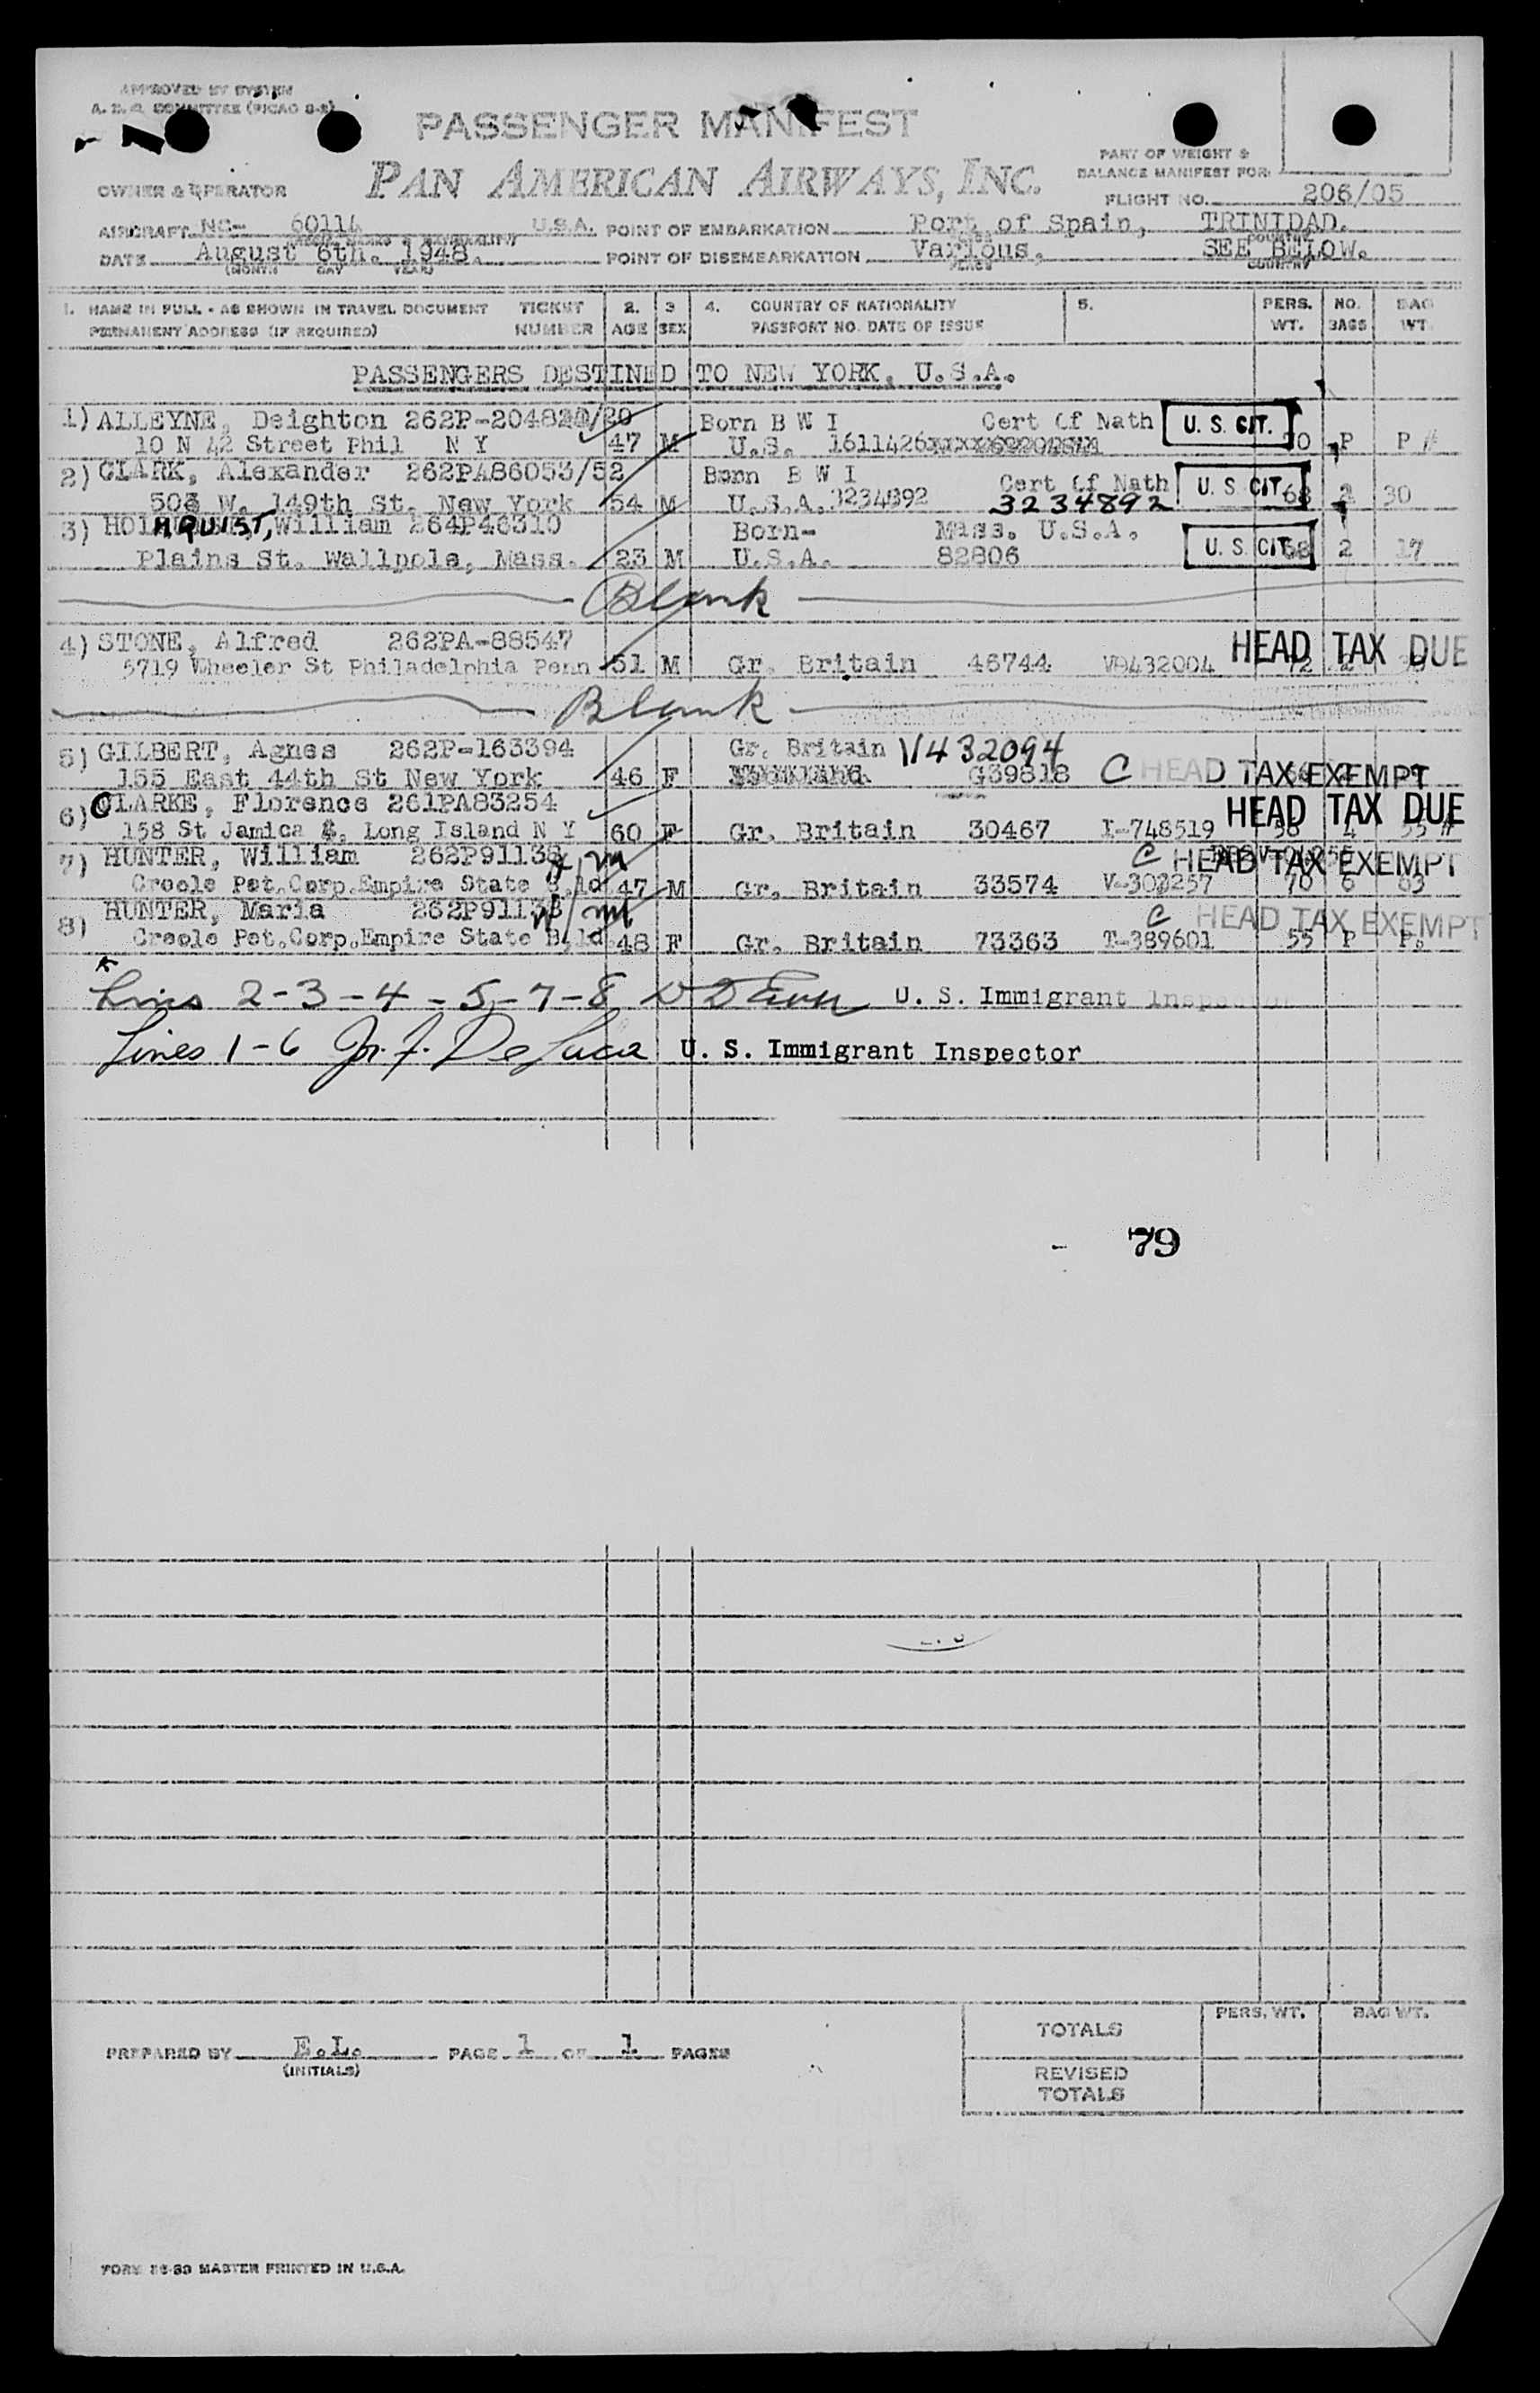 APPROVED BY SYSTEM
A. E. O. COMMITTEE (PICAO S-2)
PASSENGER MANIFEST
PAN AMERICAN AIRWAYS, INC.
OWNER & OPERATOR
PART OF WEIGHT &
BALANCE MANIFEST FOR:
FLIGHT NO. 206/05
AIRCRAFT NC- 60114 U.S.A. POINT OF EMBARKATION Port of Spain, TRINIDAD.
DATE August 6th. 1948. POINT OF DISEMBARKATION Various, SEE BELOW.
(MONTH DAY YEAR) PLACE COUNTRY
1. NAME IN FULL - AS SHOWN IN TRAVEL DOCUMENT TICKET 2. 3 4. COUNTRY OF NATIONALITY 5. PERS. NO. BAG
PERMANENT ADDRESS (IF REQUIRED) NUMBER AGE SEX PASSPORT NO. DATE OF ISSUE WT. BAGS WT.
PASSENGERS DESTINED TO NEW YORK, U.S.A.
1) ALLEYNE, Deighton 262P-20482 /20 Born B W I Cert Of Nath U. S. CIT.
10 N 42 Street Phil N Y 47 M U.S. 1611426 P P #
2) CLARK, Alexander 262PA86053/52 Born B W I Cert Of Nath U. S. CIT.
503 W. 149th St. New York 54 M U.S.A. 3234892 3234892 68 2 30
3) HOLMQUIST, William 264P46310 Born- Mass. U.S.A. U. S. CIT.
Plains St. Wallpole, Mass. 23 M U.S.A. 82806 68 2 17
Blank
4) STONE, Alfred 262PA-88547 HEAD TAX DUE
5719 Wheeler St Philadelphia Penn 51 M Gr. Britain 46744 V-432004 72 2
Blank
5) GILBERT, Agnes 262P-163394 Gr. Britain V432094
155 East 44th St New York 46 F G39818 C HEAD TAX EXEMPT
6) CLARKE, Florence 261PA83254 HEAD TAX DUE
158 St Jamica , Long Island N Y 60 F Gr. Britain 30467 I-748519 58 4 55 #
7) HUNTER, William 262P91138 C HEAD TAX EXEMPT
Creole Pet.Corp.Empire State B.ld 47 M Gr. Britain 33574 V-303257 70 6 63
8) HUNTER, Maria 262P91138 C HEAD TAX EXEMPT
Creole Pet.Corp.Empire State B.ld 48 F Gr. Britain 73363 T-389601 55 P P.
Lines 2-3-4-5-7-8 U. S. Immigrant Inspector
Lines 1-6 De Luca U. S. Immigrant Inspector
79
TOTALS PERS. WT. BAG WT.
PREPARED BY E.L. PAGE 1 OF 1 PAGES
(INITIALS)
REVISED
TOTALS
FORM 36-83 MASTER PRINTED IN U.S.A.